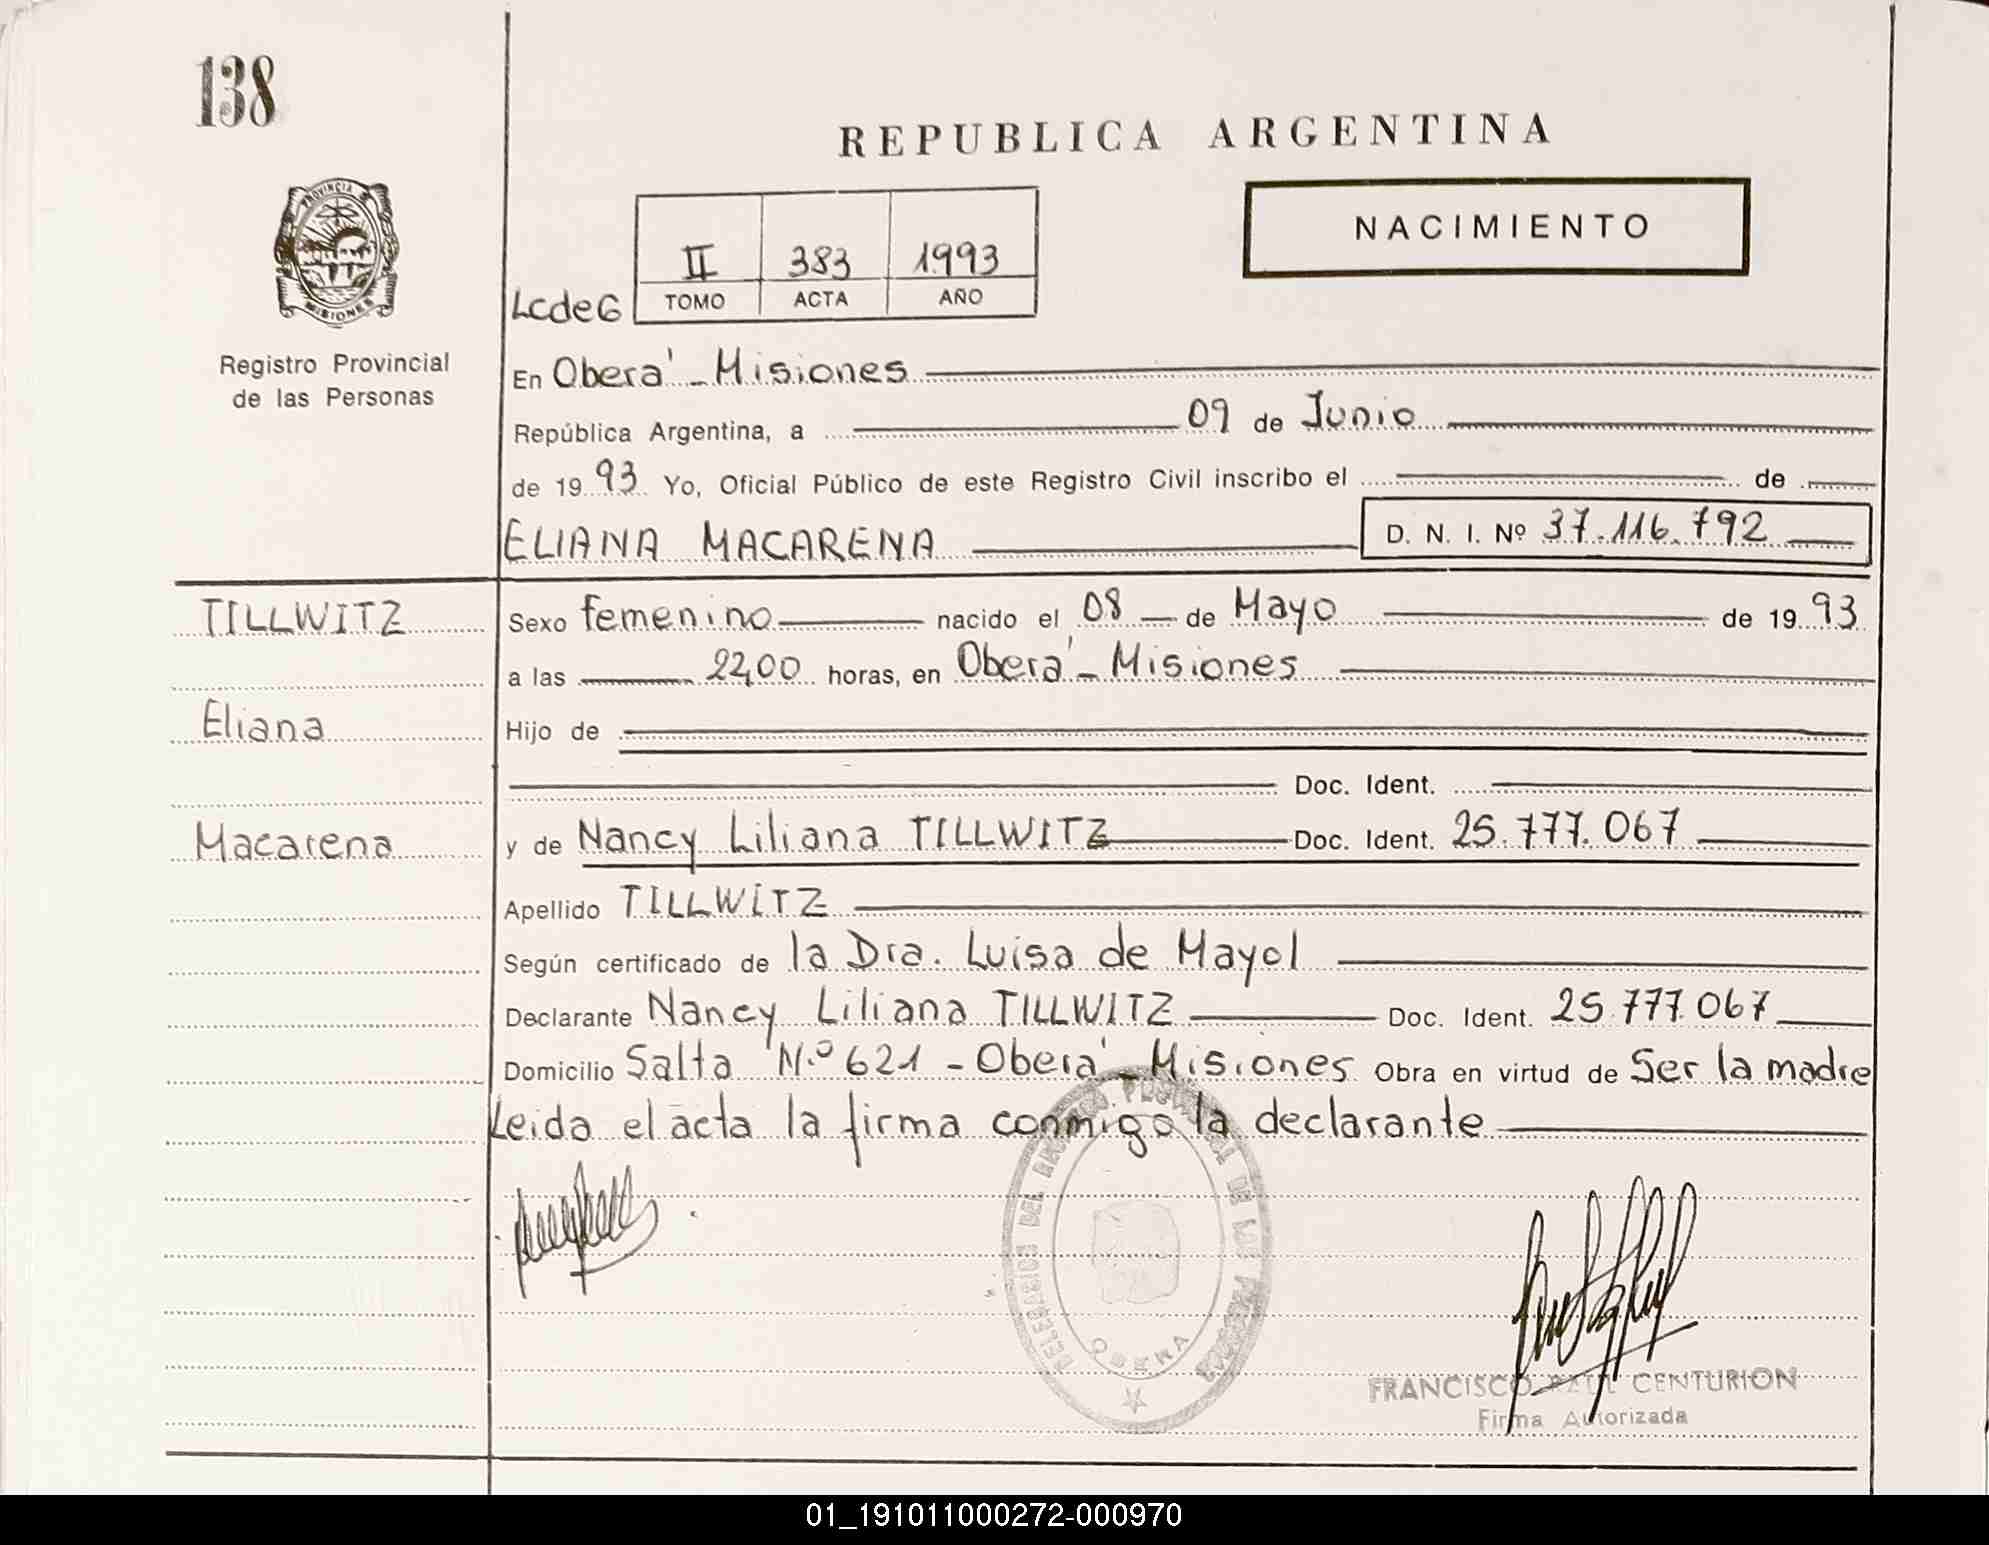 138
REPUBLICA ARGENTINA
NACIMIENTO
PROVINCIA DE
MISIONES
II 383 1993
LcdeG TOMO ACTA AÑO
Registro Provincial
de las Personas
En Oberá - Misiones
República Argentina, a 09 de Junio
de 1993 Yo, Oficial Público de este Registro Civil inscribo el de
ELIANA MACARENA D. N. I. Nº 37.116.792
TILLWITZ
Eliana
Macarena
Sexo femenino nacido el 08 de Mayo de 1993
a las 22,00 horas, en Oberá - Misiones
Hijo de
Doc. Ident.
y de Nancy Liliana TILLWITZ Doc. Ident. 25.777.067
Apellido TILLWITZ
Según certificado de la Dra. Luisa de Mayol
Declarante Nancy Liliana TILLWITZ Doc. Ident. 25.777.067
Domicilio Salta N.º 621 - Oberá - Misiones Obra en virtud de Ser la madre
Leida el acta la firma conmigo la declarante
DELEGACION DEL REGISTRO PROVINCIAL DE LAS PERSONAS
OBERA
FRANCISCO RAUL CENTURION
Firma Autorizada
01_191011000272-000970